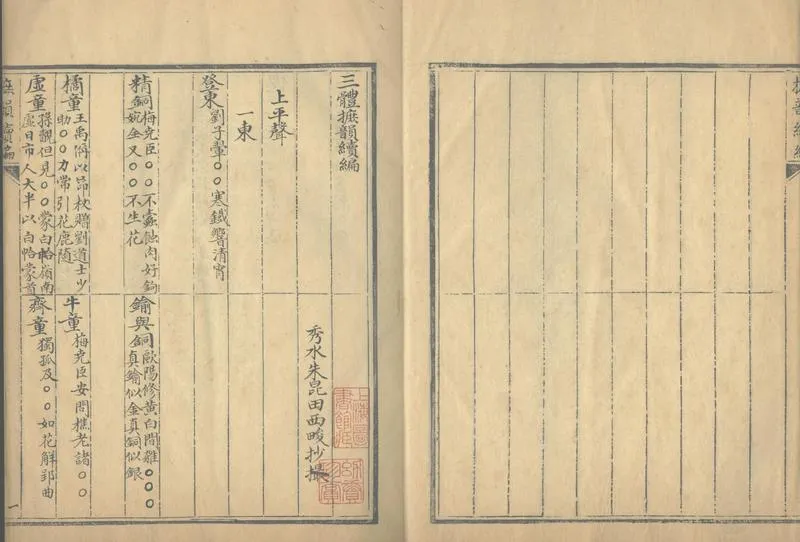 三體摭韻續編
秀水朱昆田西畯抄撮
上平聲
一東
登東 劉子翬○○寒鐵響清宵
精銅 梅堯臣○○○不蠹蝕肉好鉤
婉全又○○不生花
鍮與銅 歐陽修黃白間雜○○○
真鍮似金真銅似銀
橘童 王禹偁以昂枚贈劉道士少
助○○力常引花鹿隨
牛童 梅堯臣安問樵老諸○○
虛童 孫覿但見○○蒙白帢嶺南
虛日市人大半以白帢蒙首
齊童 獨孤及○○如花解郢曲
摭韻續編
一
摭韻續編